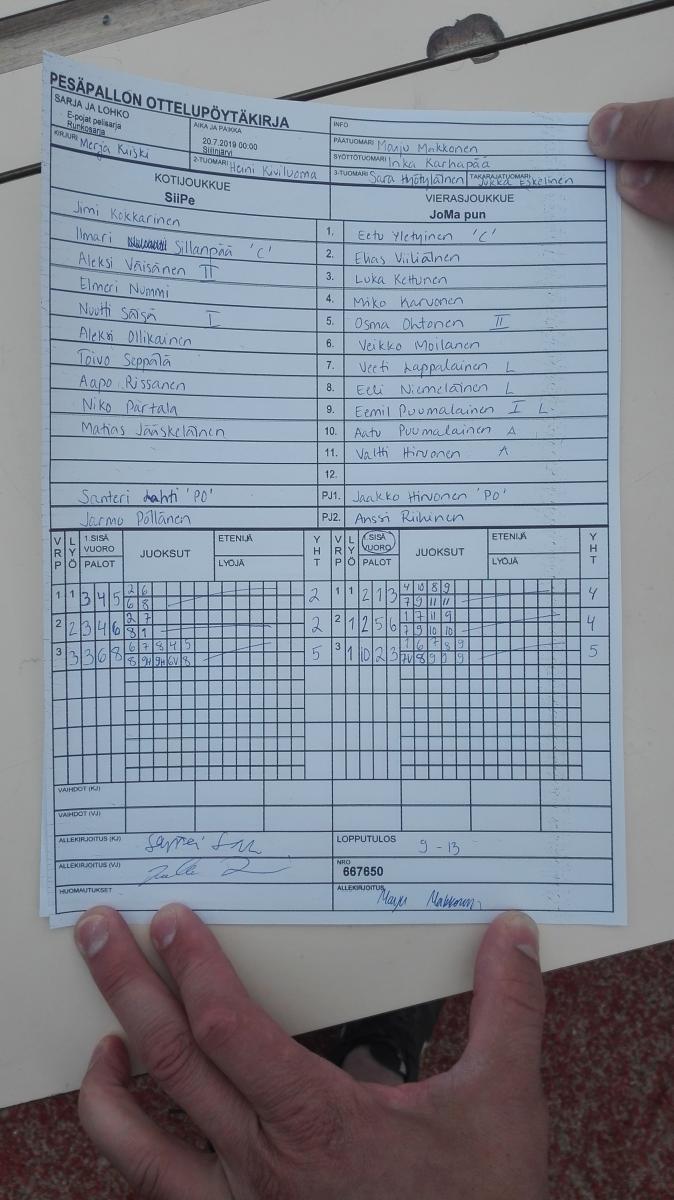 PESÄPALLON OTTELUPÖYTÄKIRJA
SARJA JA LOHKO
E-pojat pelisarja
Runkosarja
AIKA JA PAIKKA
20.7.2019 00:00
Siilinjärvi
INFO
PÄÄTUOMARI Marju Makkonen
KIRJURI Merja Kurski
2-TUOMARI Heini Kiviluoma
SYÖTTÖTUOMARI Inka Karhapää
3-TUOMARI Sara Hyötyläinen TAKARAJATUOMARI Jukka Eskelinen
KOTIJOUKKUE
SiiPe
VIERASJOUKKUE
JoMa pun
Jimi Kokkarinen 1. Eetu Yletyinen 'C'
Ilmari Sillanpää 'C' 2. Elias Viiliäinen
Aleksi Väisänen II 3. Luka Kettunen
Elmeri Nummi 4. Miko Karvonen
Nuutti Säisä I 5. Osma Ohtonen II
Aleksi Ollikainen 6. Veikko Moilanen
Toivo Seppälä 7. Veeti Lappalainen L
Aapo Rissanen 8. Eeli Niemeläinen L
Niko Partala 9. Eemil Puumalainen I L
Matias Jääskeläinen 10. Aatu Puumalainen A
11. Valtti Hirvonen A
12.
Santeri Lahti 'PO' PJ1. Jaakko Hirvonen 'PO'
Jarmo Pöllänen PJ2. Anssi Riihinen
VRP LYÖ 1.SISÄ VUORO PALOT JUOKSUT ETENIJÄ LYÖJÄ YHT VRP LYÖ SISÄ VUORO PALOT JUOKSUT ETENIJÄ LYÖJÄ YHT
1 1 3 4 5 2 6 2 1 1 2 1 3 4 10 8 9 4
6 8 7 9 11 11
2 2 3 4 6 2 7 2 2 1 2 5 6 1 7 11 9 4
8 1 7 9 10 10
3 3 3 6 8 6 7 8 4 5 5 3 1 10 2 3 1 6 7 8 9 5
8 9H 9H 6V 8 7V 8 9 9 9
VAIHDOT (KJ)
VAIHDOT (VJ)
ALLEKIRJOITUS (KJ)
LOPPUTULOS 9 - 13
ALLEKIRJOITUS (VJ)
NRO
667650
HUOMAUTUKSET
ALLEKIRJOITUS Marju Makkonen